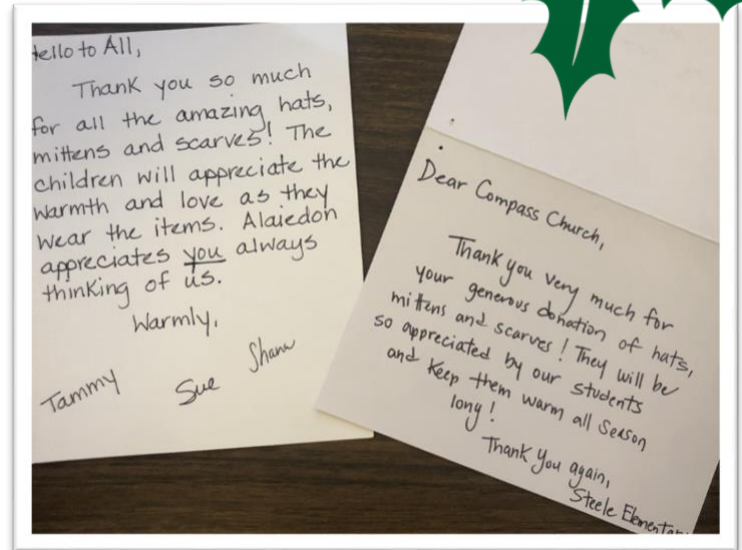 Hello to All,
Thank you so much
for all the amazing hats,
mittens and scarves! The
children will appreciate the
warmth and love as they
wear the items. Alaiedon
appreciates you always
thinking of us.
Warmly,
Tammy
Sue
Shana
Dear Compass Church,
Thank you very much for
your generous donation of hats,
mittens and scarves! They will be
so appreciated by our students
and keep them warm all season
long!
Thank you again,
Steele Elementar